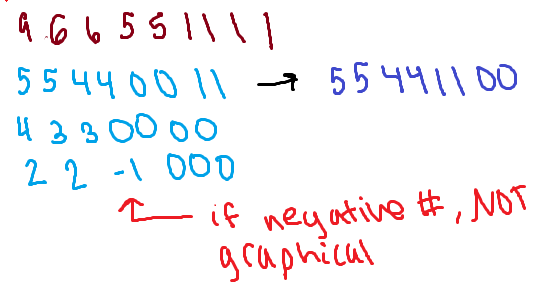 9 6 6 5 5 1 1 1 1
5 5 4 4 0 0 1 1 → 5 5 4 4 1 1 0 0
4 3 3 0 0 0 0
2 2 -1 0 0 0
if negative #, NOT
graphical